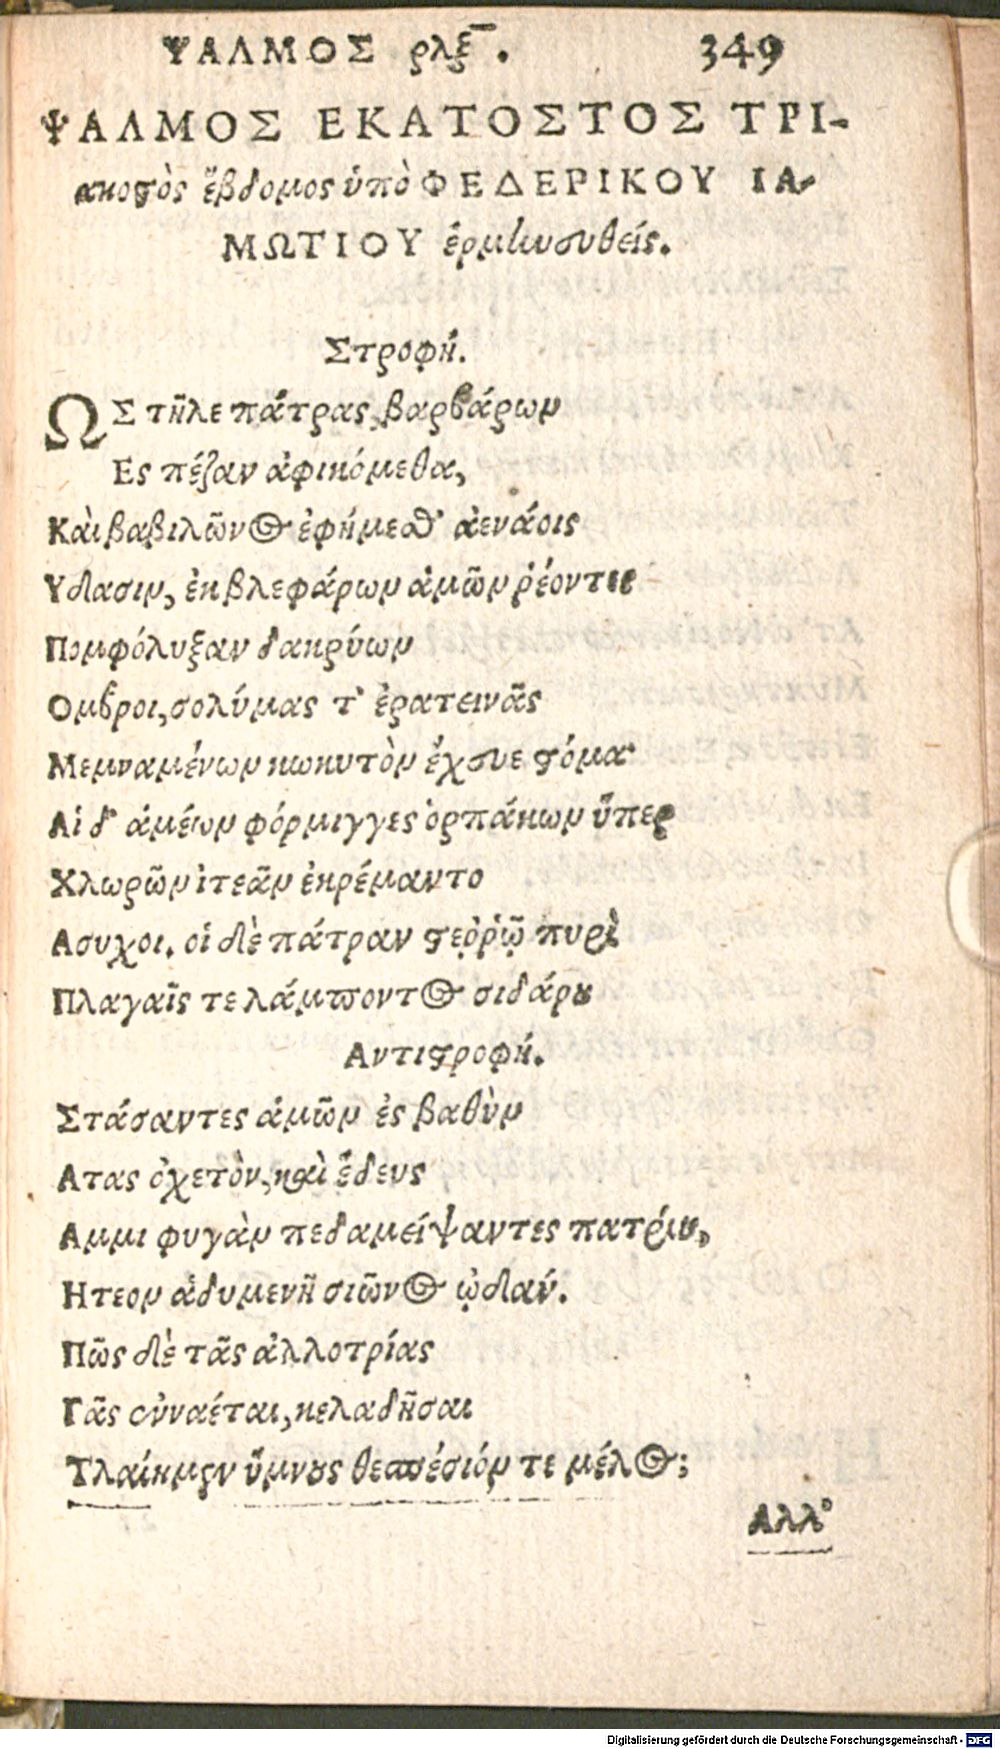 ΨΑΛΜΟΣ ρλξ̅. 349
ΨΑΛΜΟΣ ΕΚΑΤΟΣΤΟΣ ΤΡΙ-
ακοϛὸς ἕβδομος ὑπὸ ΦΕΔΕΡΙΚΟΥ ΙΑ-
ΜΩΤΙΟΥ ἑρμηνευθείς.
Στροφή.
ΩΣ τῆλε πάτρας βαρβάρων
Ες πέζαν ἀφικόμεθα,
Καὶ βαβιλῶνος ἐφήμεθ' ἀενάοις
Υδασιν, ἐκ βλεφάρων ἁμῶν ῥέοντες
Πομφόλυξαν δακρύων
Ομβροι, σολύμας τ' ἐρατεινᾶς
Μεμναμένων κωκυτὸν ἔχευε ϛόμα·
Αἱ δ' ἁμέων φόρμιγγες ὁρπάκων ὕπερ
Χλωρῶν ἰτεᾶν ἐκρέμαντο
Ασυχοι. οἱ δὲ πάτραν ϛεῤῥῷ πυρὶ
Πλαγαῖς τε λάμποντος σιδάρου
Αντιϛροφή.
Στάσαντες ἁμῶν ἐς βαθὺν
Ατας ὀχετὸν, καὶ ἕδευς
Αμμι φυγὰν πεδαμείψαντες πατρίου,
Ητεον ἁδυμενῆ σιῶνος ᾠδάν.
Πῶς δὲ τᾶς ἀλλοτρίας
Γᾶς ἐνναέται, κελαδῆσαι
Τλαίημεν ὕμνους θεσπέσιόν τε μέλος;
Αλλ'
Digitalisierung gefördert durch die Deutsche Forschungsgemeinschaft - DFG